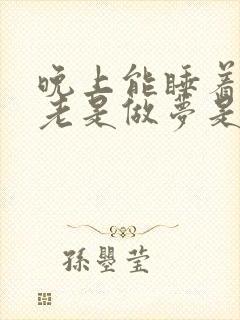 晚上能睡着
老是做梦是
孫曌莹